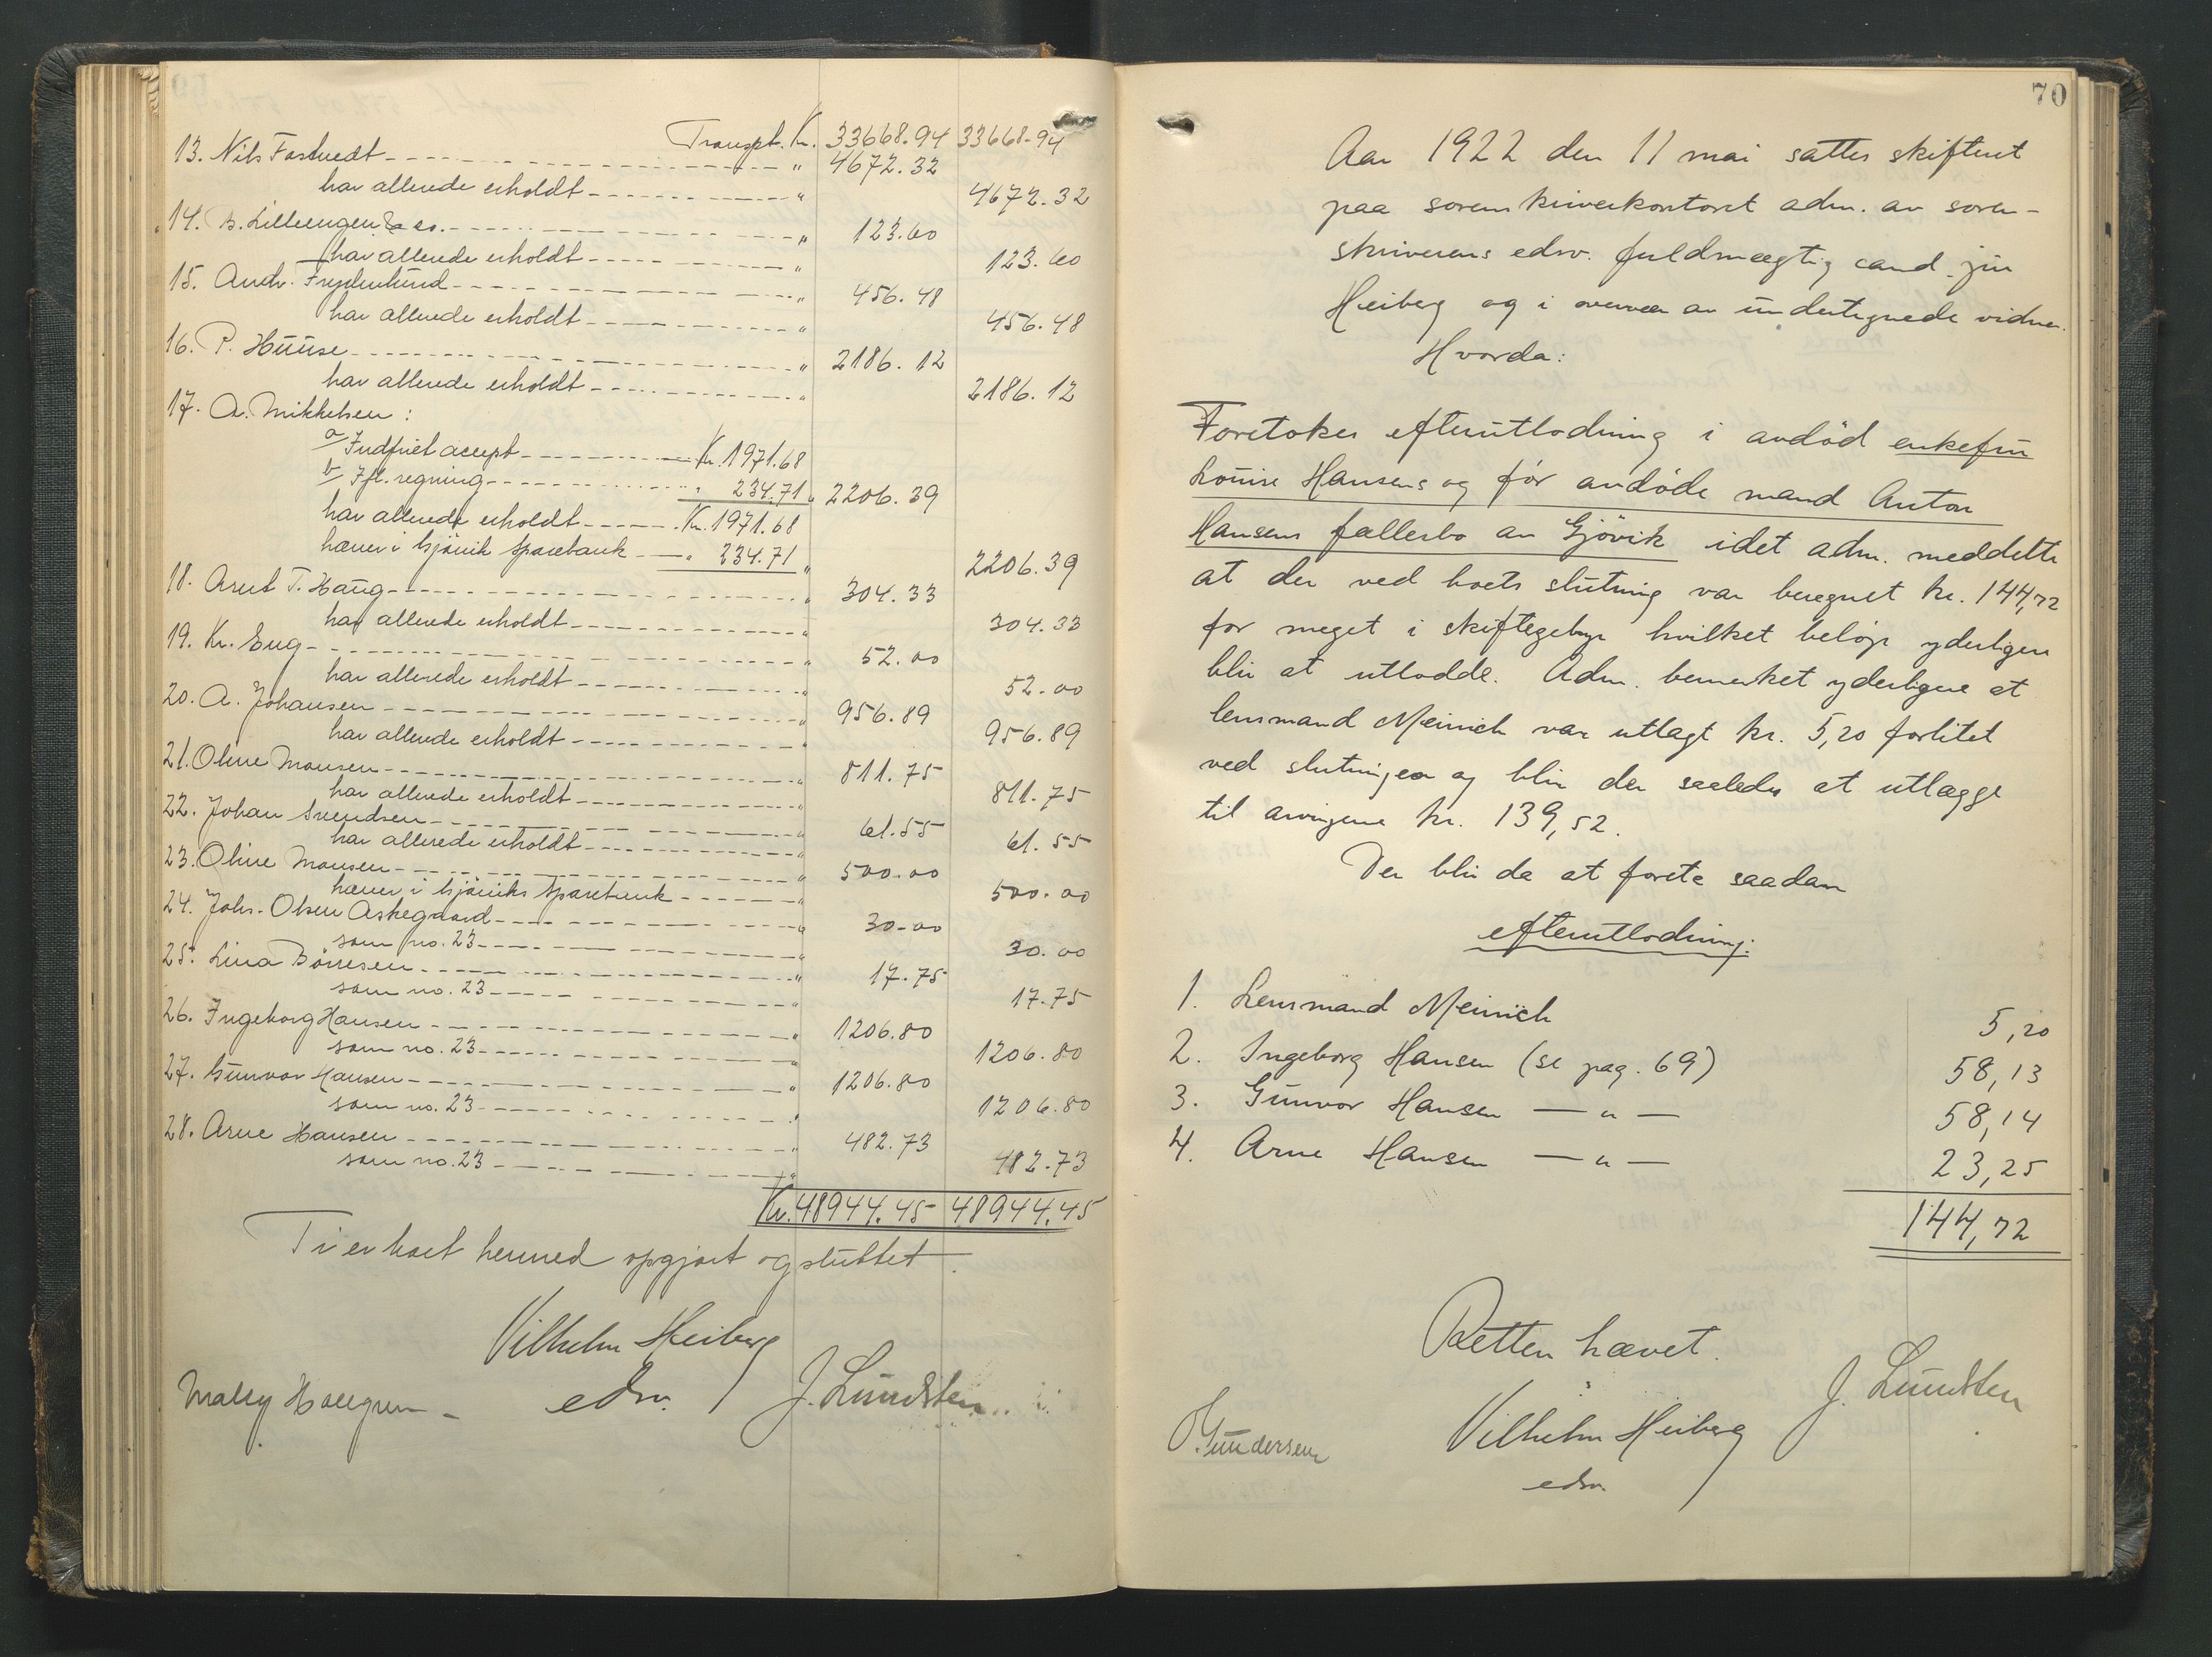 Transpt. Kr. 33668.94 33668.94
13. Nils Fastvedt " 4672.32
har allerede erholdt " 4672.32
14. B. Lilleengen & co. " 123.60
har allerede erholdt " 123.60
15. Andr. Frydenlund " 456.48
har allerede erholdt " 456.48
16. P. Huuse " 2186.12
har allerede erholdt " 2186.12
17. A. Mikkelsen:
a/ Indfriet accept Kr. 1971.68
b/ Ifl. regning " 234.71 " 2206.39
har allerede erholdt Kr. 1971.68
hæver i Gjövik Sparebank " 234.71 " 2206.39
18. Arnt T. Haug " 304.33
har allerede erholdt " 304.33
19. Kr. Eng " 52.00
har allerede erholdt " 52.00
20. A. Johansen " 956.89
har allerede erholdt " 956.89
21. Oline Monsen " 811.75
har allerede erholdt " 811.75
22. Johan Svendsen " 61.55
har allerede erholdt " 61.55
23. Oline Monsen " 500.00
hæver i Gjöviks Sparebank " 500.00
24. Johs. Olsen Askegaard " 30.00
som no. 23 " 30.00
25. Lina Börresen " 17.75
som no. 23 " 17.75
26. Ingeborg Hansen " 1206.80
som no. 23 " 1206.80
27. Gunvor Hansen " 1206.80
som no. 23 " 1206.80
28. Arne Hansen " 482.73
som no. 23 " 482.73
Kr. 48944.45 48944.45
Ti er boet hermed opgjort og sluttet.
Vilhelm Heiberg
edsv.
J. Lundsten
70
Aar 1922 den 11 mai sattes skifteret
paa sorenskriverkontoret adm. av soren-
skriverens edsv. fuldmægtig cand. jur
Heiberg og i overvær av undertegnede vidner.
Hvorda:
Foretokes efterutlodning i avdöd enkefru
Louise Hansens og för avdöde mand Anton
Hansens fællesbo av Gjövik idet adm. meddelte
at der ved boets slutning var beregnet kr. 144,72
for meget i skiftegebyr hvilket belöp yderligere
blir at utlodde. Adm. bemerket yderligere at
lensmand Meinich var utlagt kr. 5,20 forlitet
ved slutningen og blir der saaledes at utlægge
til arvingene kr. 139,52.
Der blir da at foreta saadan
efterutlodning:
1. Lensmand Meinich 5,20
2. Ingeborg Hansen (se pag. 69) 58,13
3. Gunvor Hansen — " — 58,14
4. Arne Hansen — " — 23,25
144,72
Retten hævet.
Vilhelm Heiberg
edsv.
J. Lundsten
Gundersen